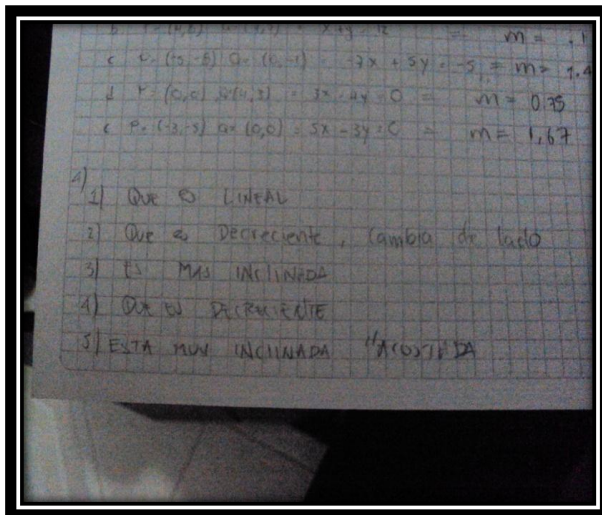 c P= (-5,-8) Q= (0,-1) = -7x + 5y = -5 = m= 1.4
d P= (0,0) Q(4,3) = 3x - 4y = 0 = m= 0.75
e P= (-3,-5) Q= (0,0) = 5x - 3y = 0 = m= 1,67
1) Que es LINEAL
2) Que es Decreciente, cambia de lado
3) ES MAS INCLINADA
4) QUE ES DECRECIENTE
5) ESTA MUY INCLINADA "ACOSTADA